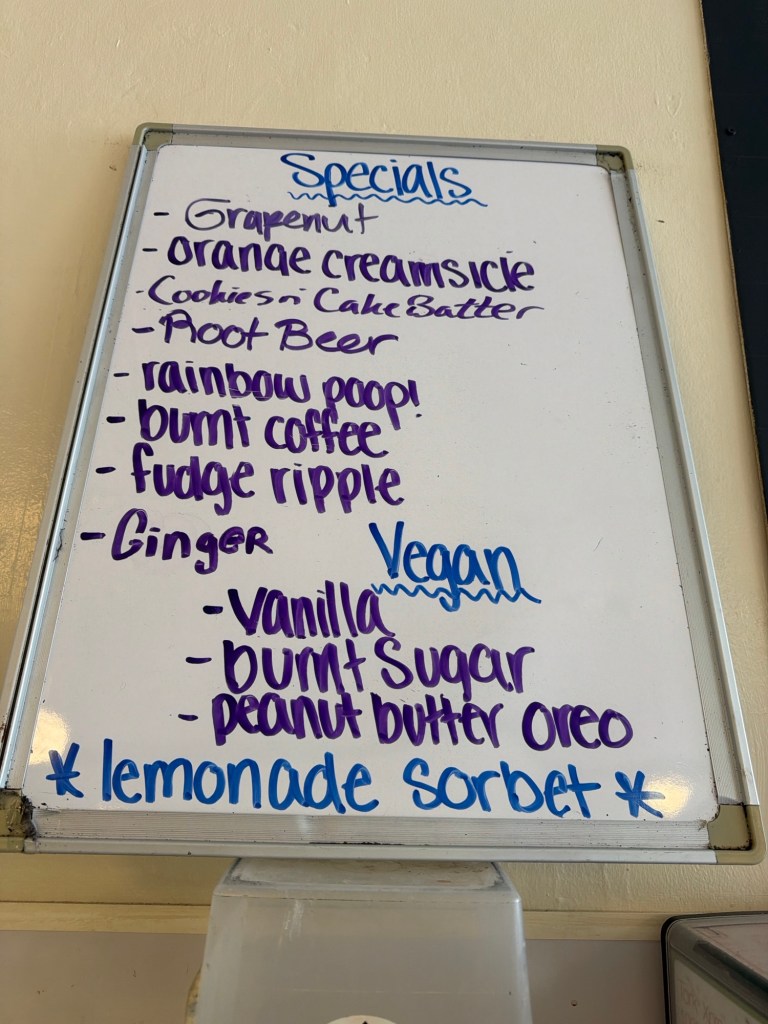 Specials
- Grapenut
- orange creamsicle
- Cookies n' Cake Batter
- Root Beer
- rainbow poop!
- burnt coffee
- fudge ripple
- Ginger
Vegan
- vanilla
- burnt Sugar
- peanut butter oreo
* lemonade sorbet *